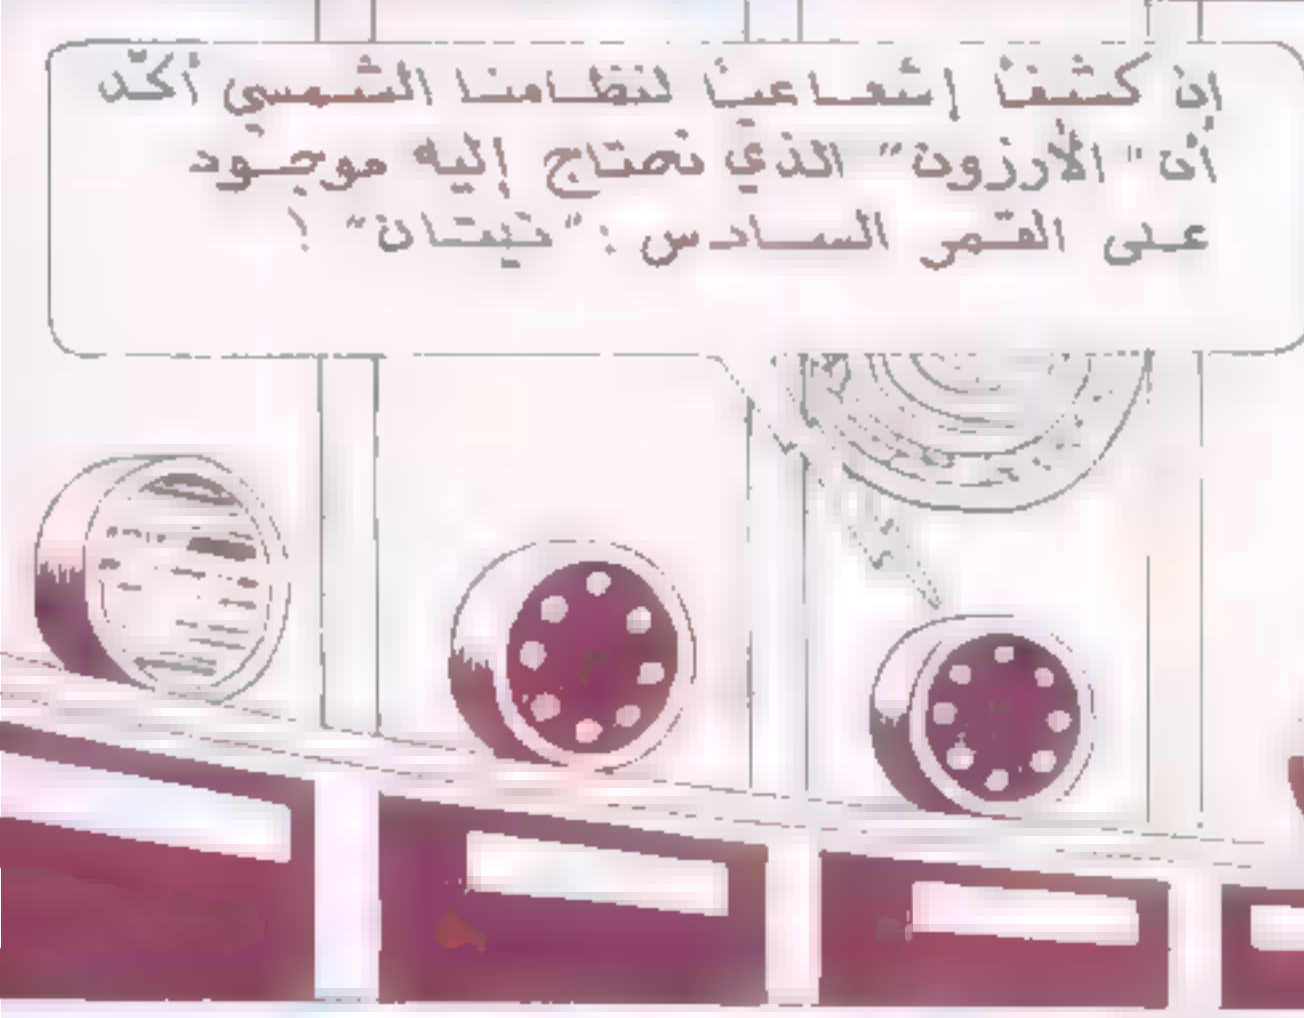 ان كشفنا إشعاعيا لنظامنا الشمسي أكّد
أن "الأرزون" الذي نحتاج إليه موجود
على القمر السادس : "تيتان" !